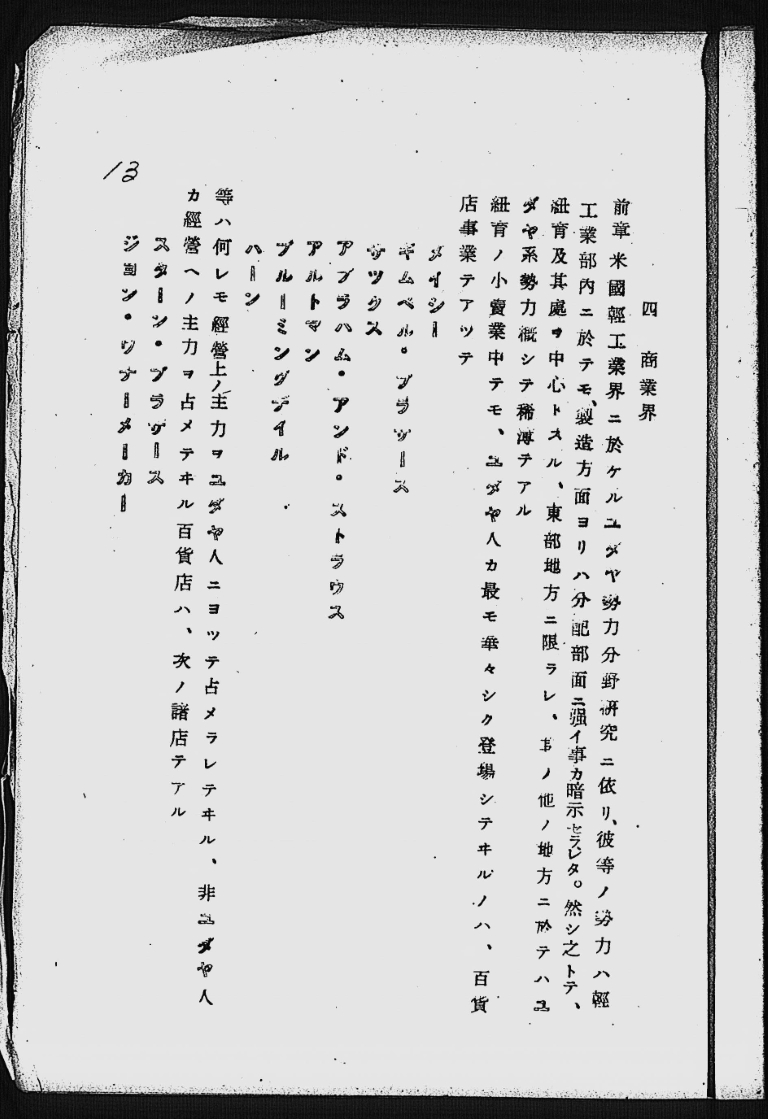 四　商業界
前章米國輕工業界ニ於ケルユダヤ勢力分野研究ニ依リ、彼等ノ勢力ハ輕
工業部內ニ於テモ、製造方面ヨリハ分配部面ニ强イ事カ暗示セラレタ。然シ之トテ、
紐育及其處ヲ中心トスル、東部地方ニ限ラレ、其ノ他ノ地方ニ於テハユ
ダヤ系勢力槪シテ稀薄テアル
紐育ノ小賣業中テモ、ユダヤ人カ最モ華々シク登場シテヰルノハ、百貨
店事業テアツテ
メイシー
ギムベル・ブラザース
サツクス
アブラハム・アンド・ストラウス
アルトマン
ブルーミングデイル
ハーン
等ハ何レモ經營上ノ主力ヲユダヤ人ニヨツテ占メラレテヰル、非ユダヤ人
カ經營ヘノ主力ヲ占メテヰル百貨店ハ、次ノ諸店テアル
スターン・ブラザース
ジョン・ワナーメーカー
13